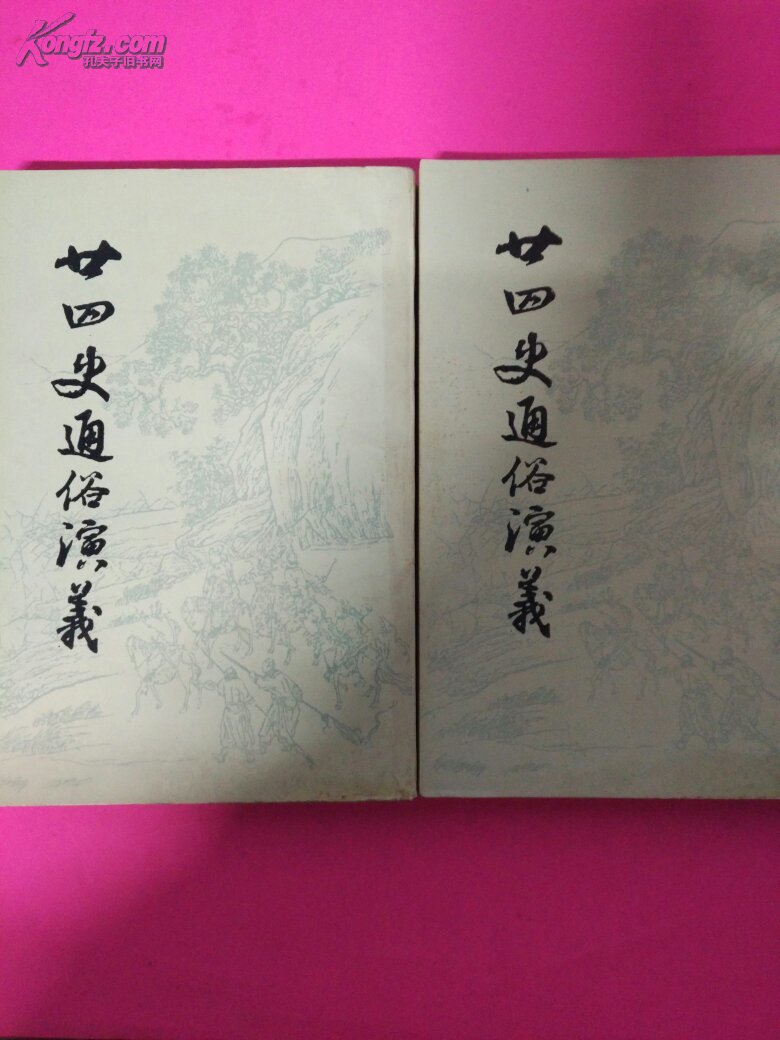 Kongfz.com
孔夫子旧书网
廿四史通俗演義
廿四史通俗演義